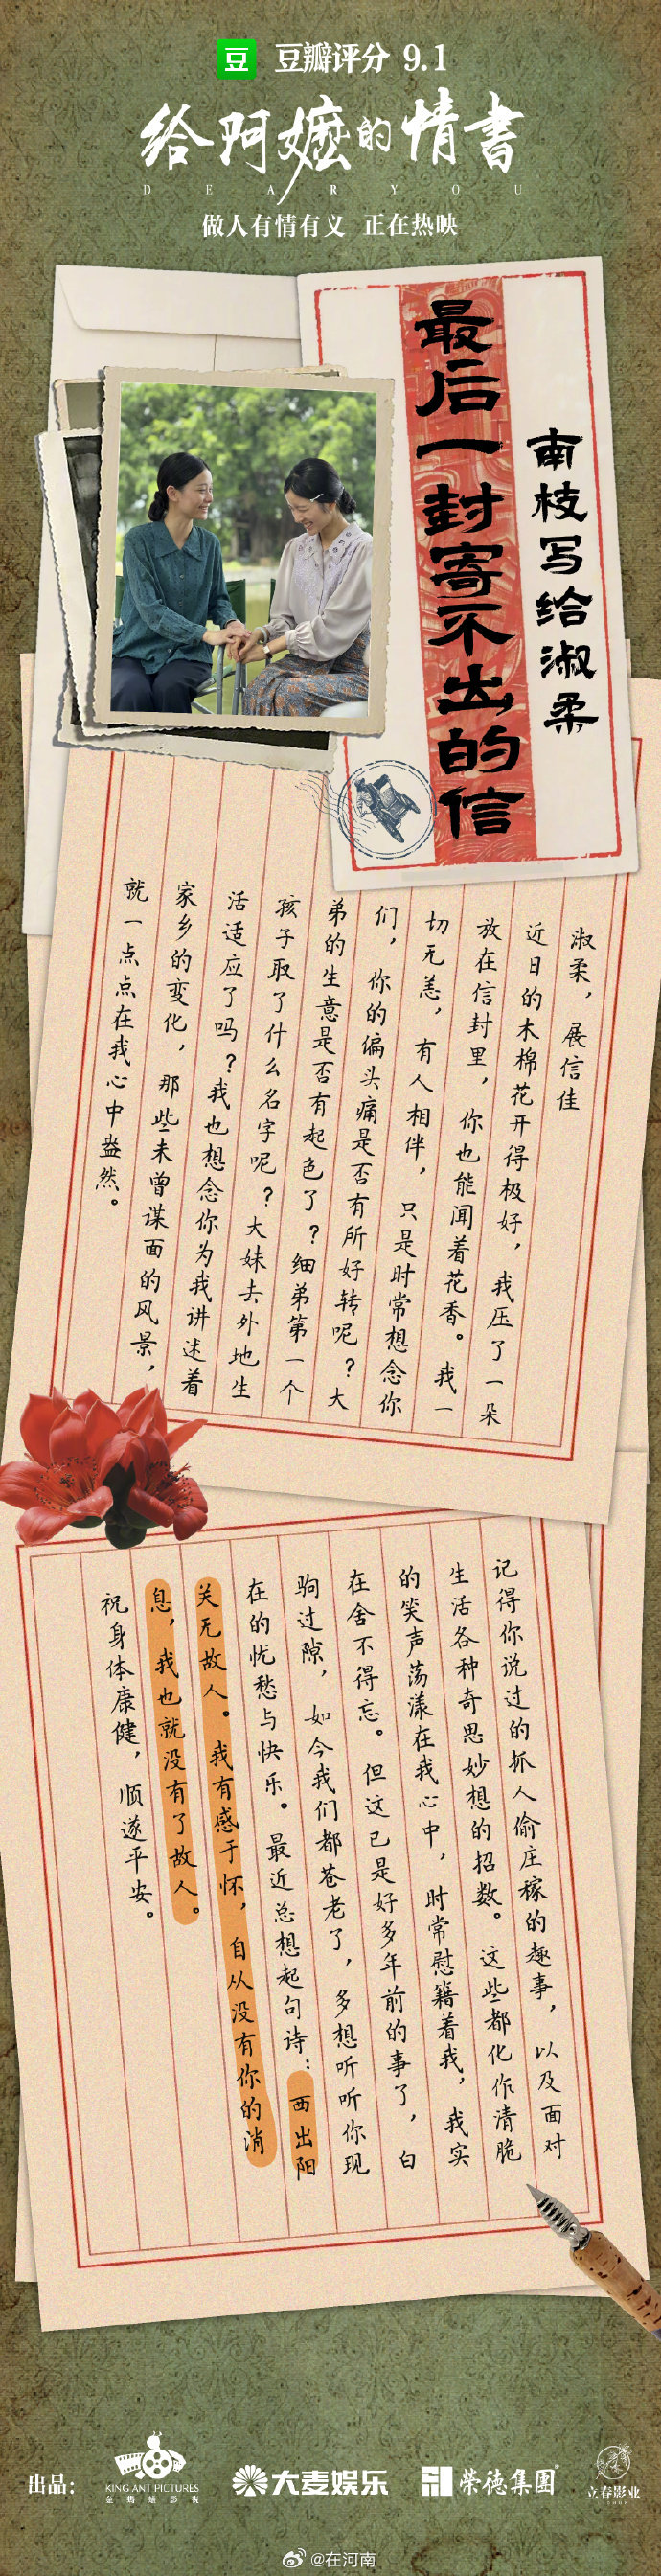 豆 豆瓣评分 9.1
给阿嬷的情書
DEAR YOU
做人有情有义 正在热映
最后一封寄不出的信
南枝写给淑柔
淑柔，展信佳
近日的木棉花开得极好，我压了一朵
放在信封里，你也能闻着花香。我一
切无恙，有人相伴，只是时常想念你
们，你的偏头痛是否有所好转呢？大
弟的生意是否有起色了？细弟第一个
孩子取了什么名字呢？大妹去外地生
活适应了吗？我也想念你为我讲述着
家乡的变化，那些未曾谋面的风景，
就一点点在我心中盎然。
记得你说过的抓人偷庄稼的趣事，以及面对
生活各种奇思妙想的招数。这些都化作清脆
的笑声荡漾在我心中，时常慰籍着我，我实
在舍不得忘。但这已是好多年前的事了，白
驹过隙，如今我们都苍老了，多想听听你现
在的忧愁与快乐。最近总想起句诗：西出阳
关无故人。我有感于怀，自从没有你的消
息，我也就没有了故人。
祝身体康健，顺遂平安。
出品：
KING ANT PICTURES
大麦娱乐
荣德集团
立春影业
@在河南